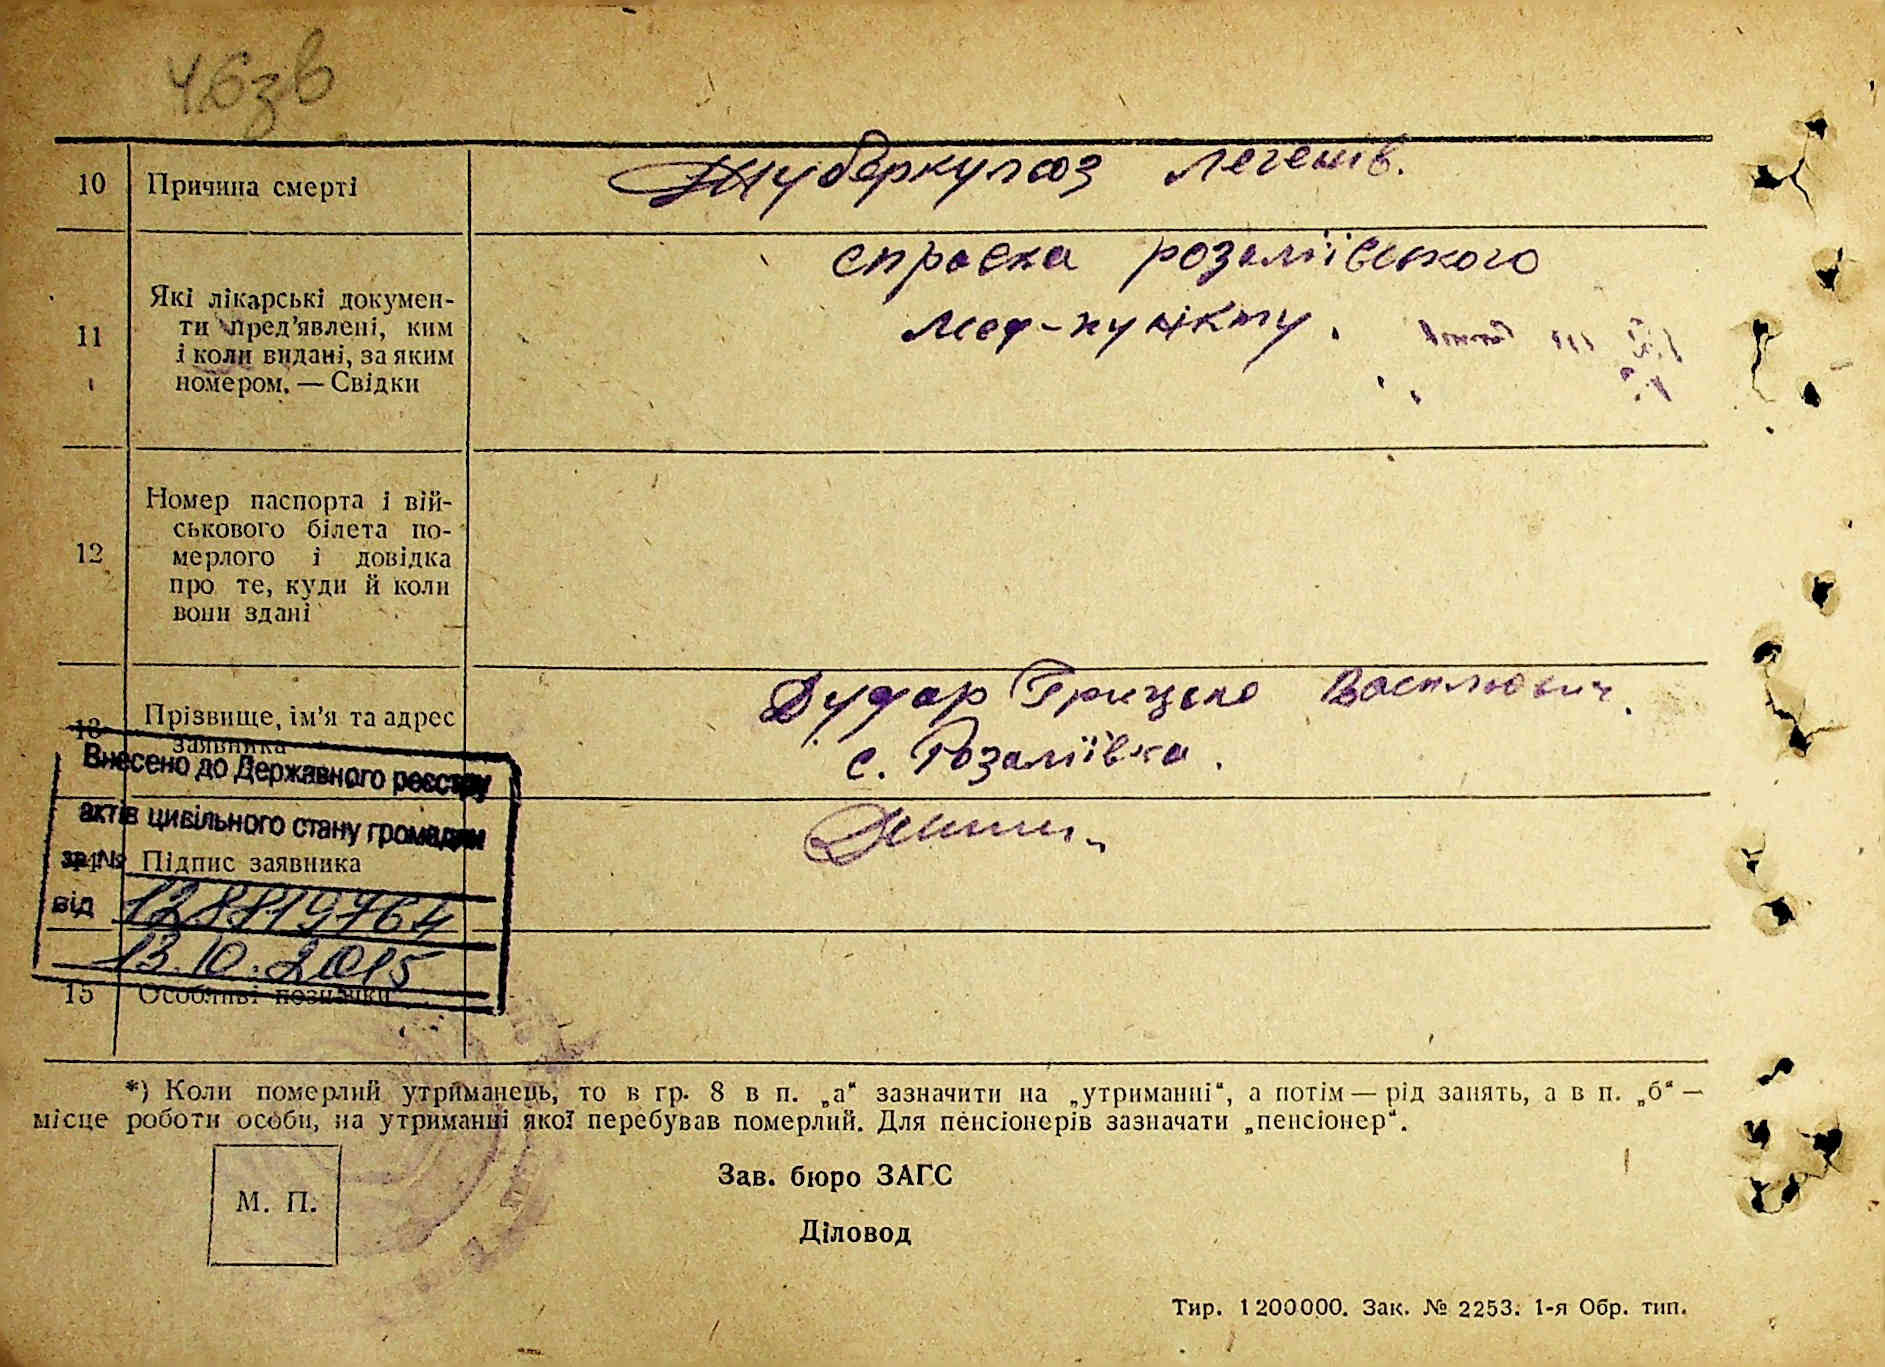 46зв
10 Причина смерті Туберкульоз легенів.
11 Які лікарські докумен-
ти пред'явлені, ким
і коли видані, за яким
номером. — Свідки
справка розаліївського
мед-пункту.
12 Номер паспорта і вій-
ськового білета по-
мерлого і довідка
про те, куди й коли
вони здані
13 Прізвище, ім'я та адрес
заявника
Дудар Грицько Васильович.
с. Розаліївка.
Внесено до Державного реєстру
актів цивільного стану громадян
за №
14 Підпис заявника
від 128819764
13.10.2015
15 Особливі позначки
*) Коли померлий утриманець, то в гр. 8 в п. „а“ зазначити на „утриманні“, а потім — рід занять, а в п. „б“ —
місце роботи особи, на утриманні якої перебував померлий. Для пенсіонерів зазначати „пенсіонер“.
М. П.
Зав. бюро ЗАГС
Діловод
Тир. 1200000. Зак. № 2253. 1-я Обр. тип.